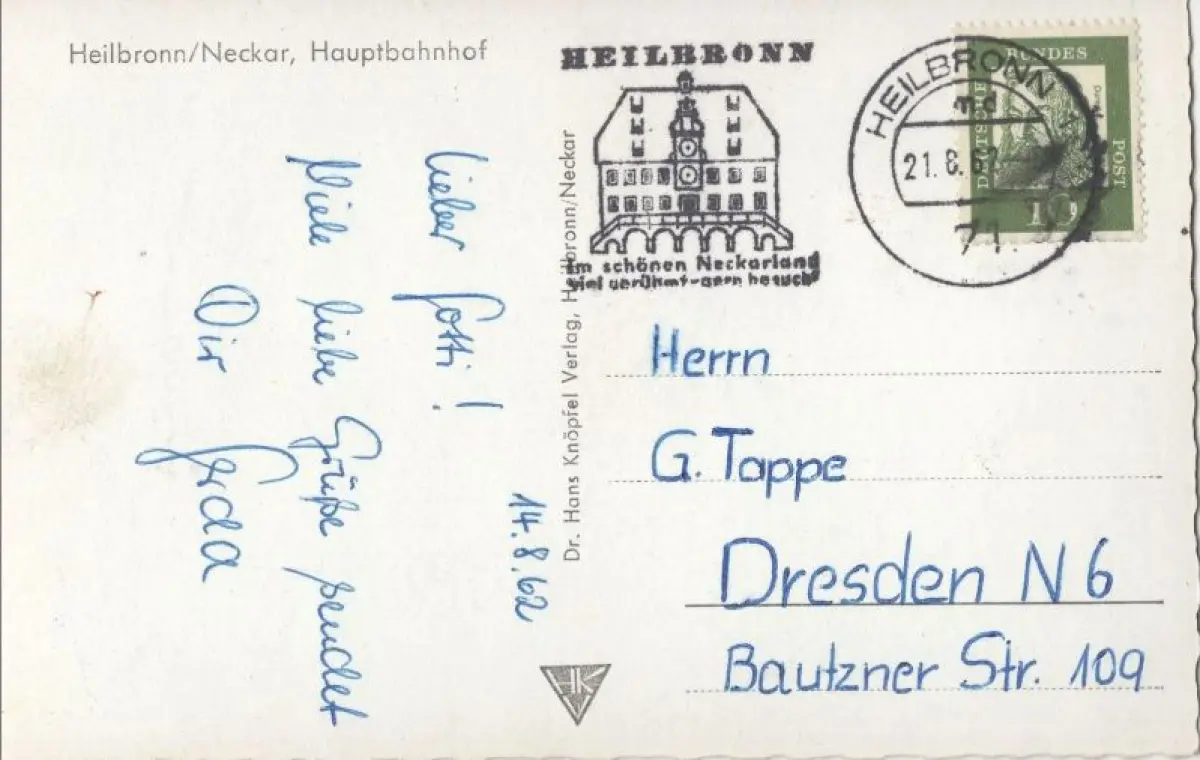 Heilbronn/Neckar, Hauptbahnhof
14.8.62
Lieber Gotti!
Viele liebe Grüße sendet
Dir
Gerda
Dr. Hans Knöpfel Verlag, Heilbronn/Neckar
HK
HEILBRONN
Im schönen Neckarland
viel gerühmt-gern besucht
HEILBRONN 1
md
21.8.62
71.
DEUTSCHE
BUNDES
POST
10
Herrn
G. Tappe
Dresden N6
Bautzner Str. 109